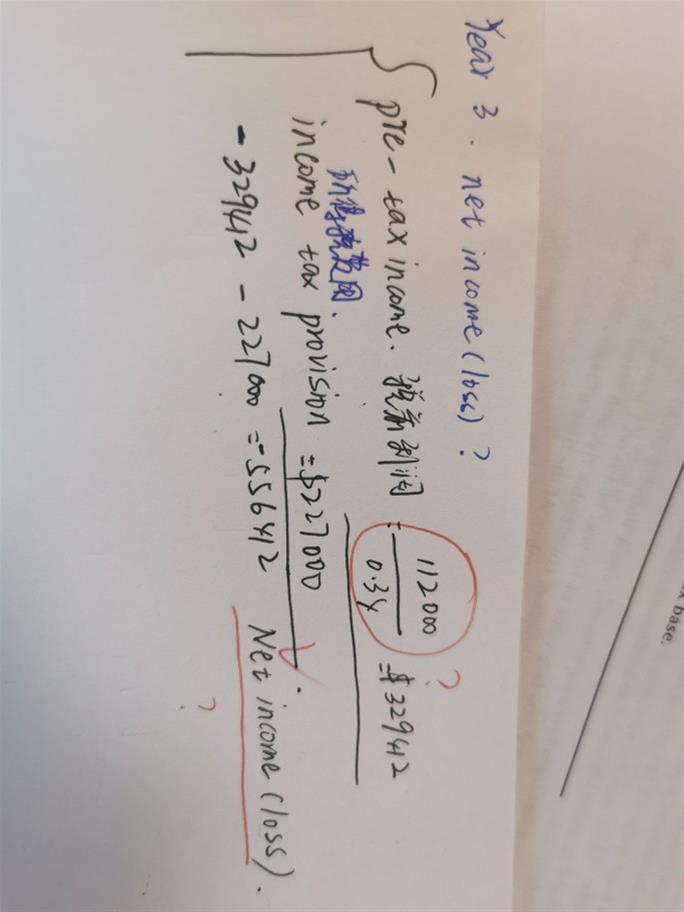 Year 3. net income (loss)?
pre-tax income. 税前利润 = 112000 / 0.34 = $329412
?
所得税费用.
income tax provision = $227000
-329412 - 227000 = -556412 Net income (loss).
?
x base.